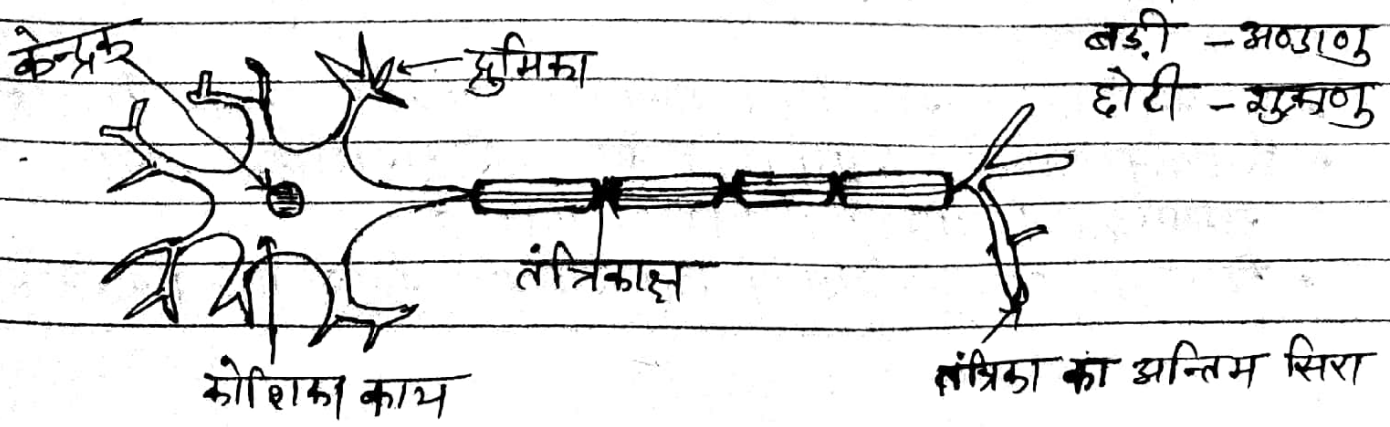 केन्द्रक
द्रुमिका
बड़ी - अण्डाणु
छोटी - शुक्राणु
तंत्रिकाक्ष
कोशिका काय
तंत्रिका का अन्तिम सिरा